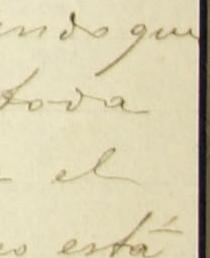 ando que
toda
el
está